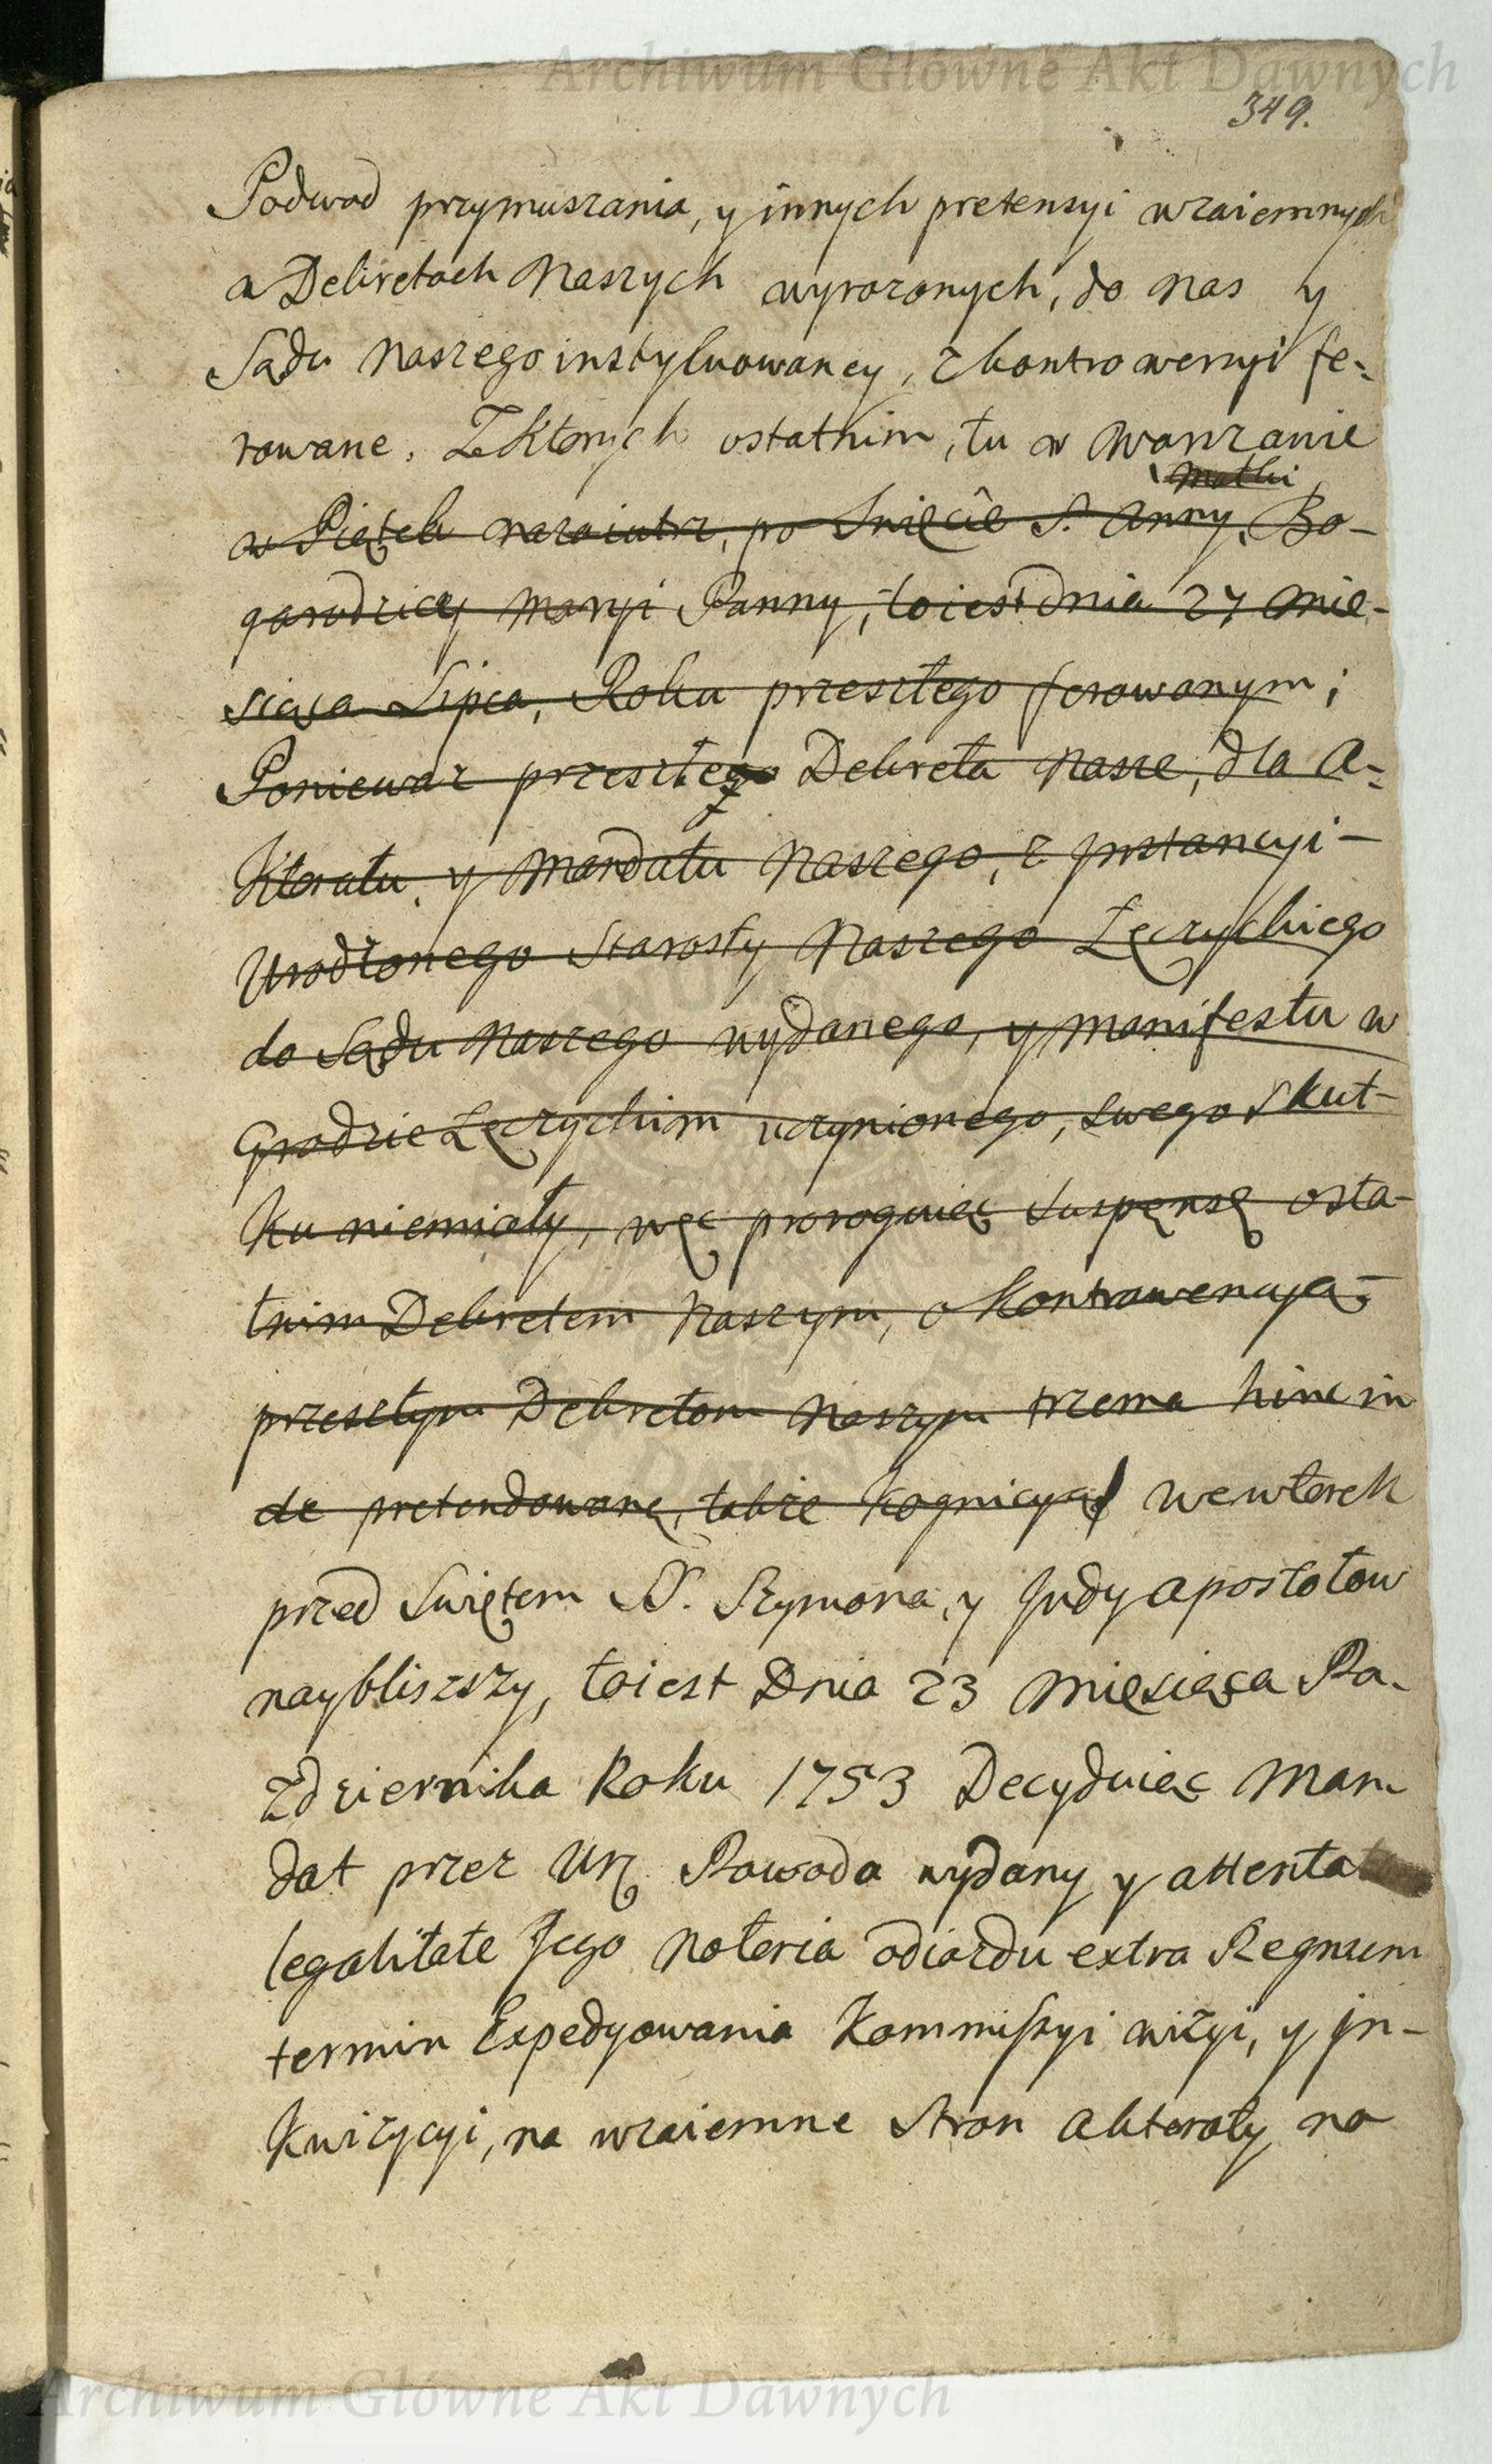 Archiwum Główne Akt Dawnych
349.
Podwod przymuszania, y innych pretensyi wzaiemnych
w Dekretach Naszych wyrazonych, do nas y
Sądu Naszego instytuowaney, z kontrowersyi fe-
rowane. Z Ktorych ostatnim, tu w Warszawie
Matki
w Piątek nazaiutrz, po Swięcie S. Anny, Bo-
garodzicy Maryi Panny, toiest Dnia 27 Mie-
siąca Lipca, Roku przeszłego ferowanym;
Poniewaz przeszłe Dekreta Nasze, dla A-
Ktoratu, y Mandatu Naszego, z Jnstancyi
Urodzonego Starosty Naszego Łęczyckiego
do Sądu Naszego wydanego, y Manifestu w
Grodzie Łęczyckim uczynionego, swego skut-
Ku niemiały, więc proroguiąc suspęnsę osta-
tnim Dekretem Naszym, o Kontrawencyą
przeszłym Dekretom Naszym trzema hinc in
de pretendowaną, także Kognicyą we wtorek
przed Swiętem SS. Szymona, y Judy Apostołow
naybliższy, toiest Dnia 23 Miesiąca Pa-
zdziernika Roku 1753 Decyduiąc Man
dat przez Ur. Powoda wydany y attenta
legalitate Jego Noteria odiazdu extra Regnum
termin Expedyowania Kommissyi wizyi, y Jn-
Kwizycyi, na wzaiemne Stron Aktoraty na
Archiwum Główne Akt Dawnych